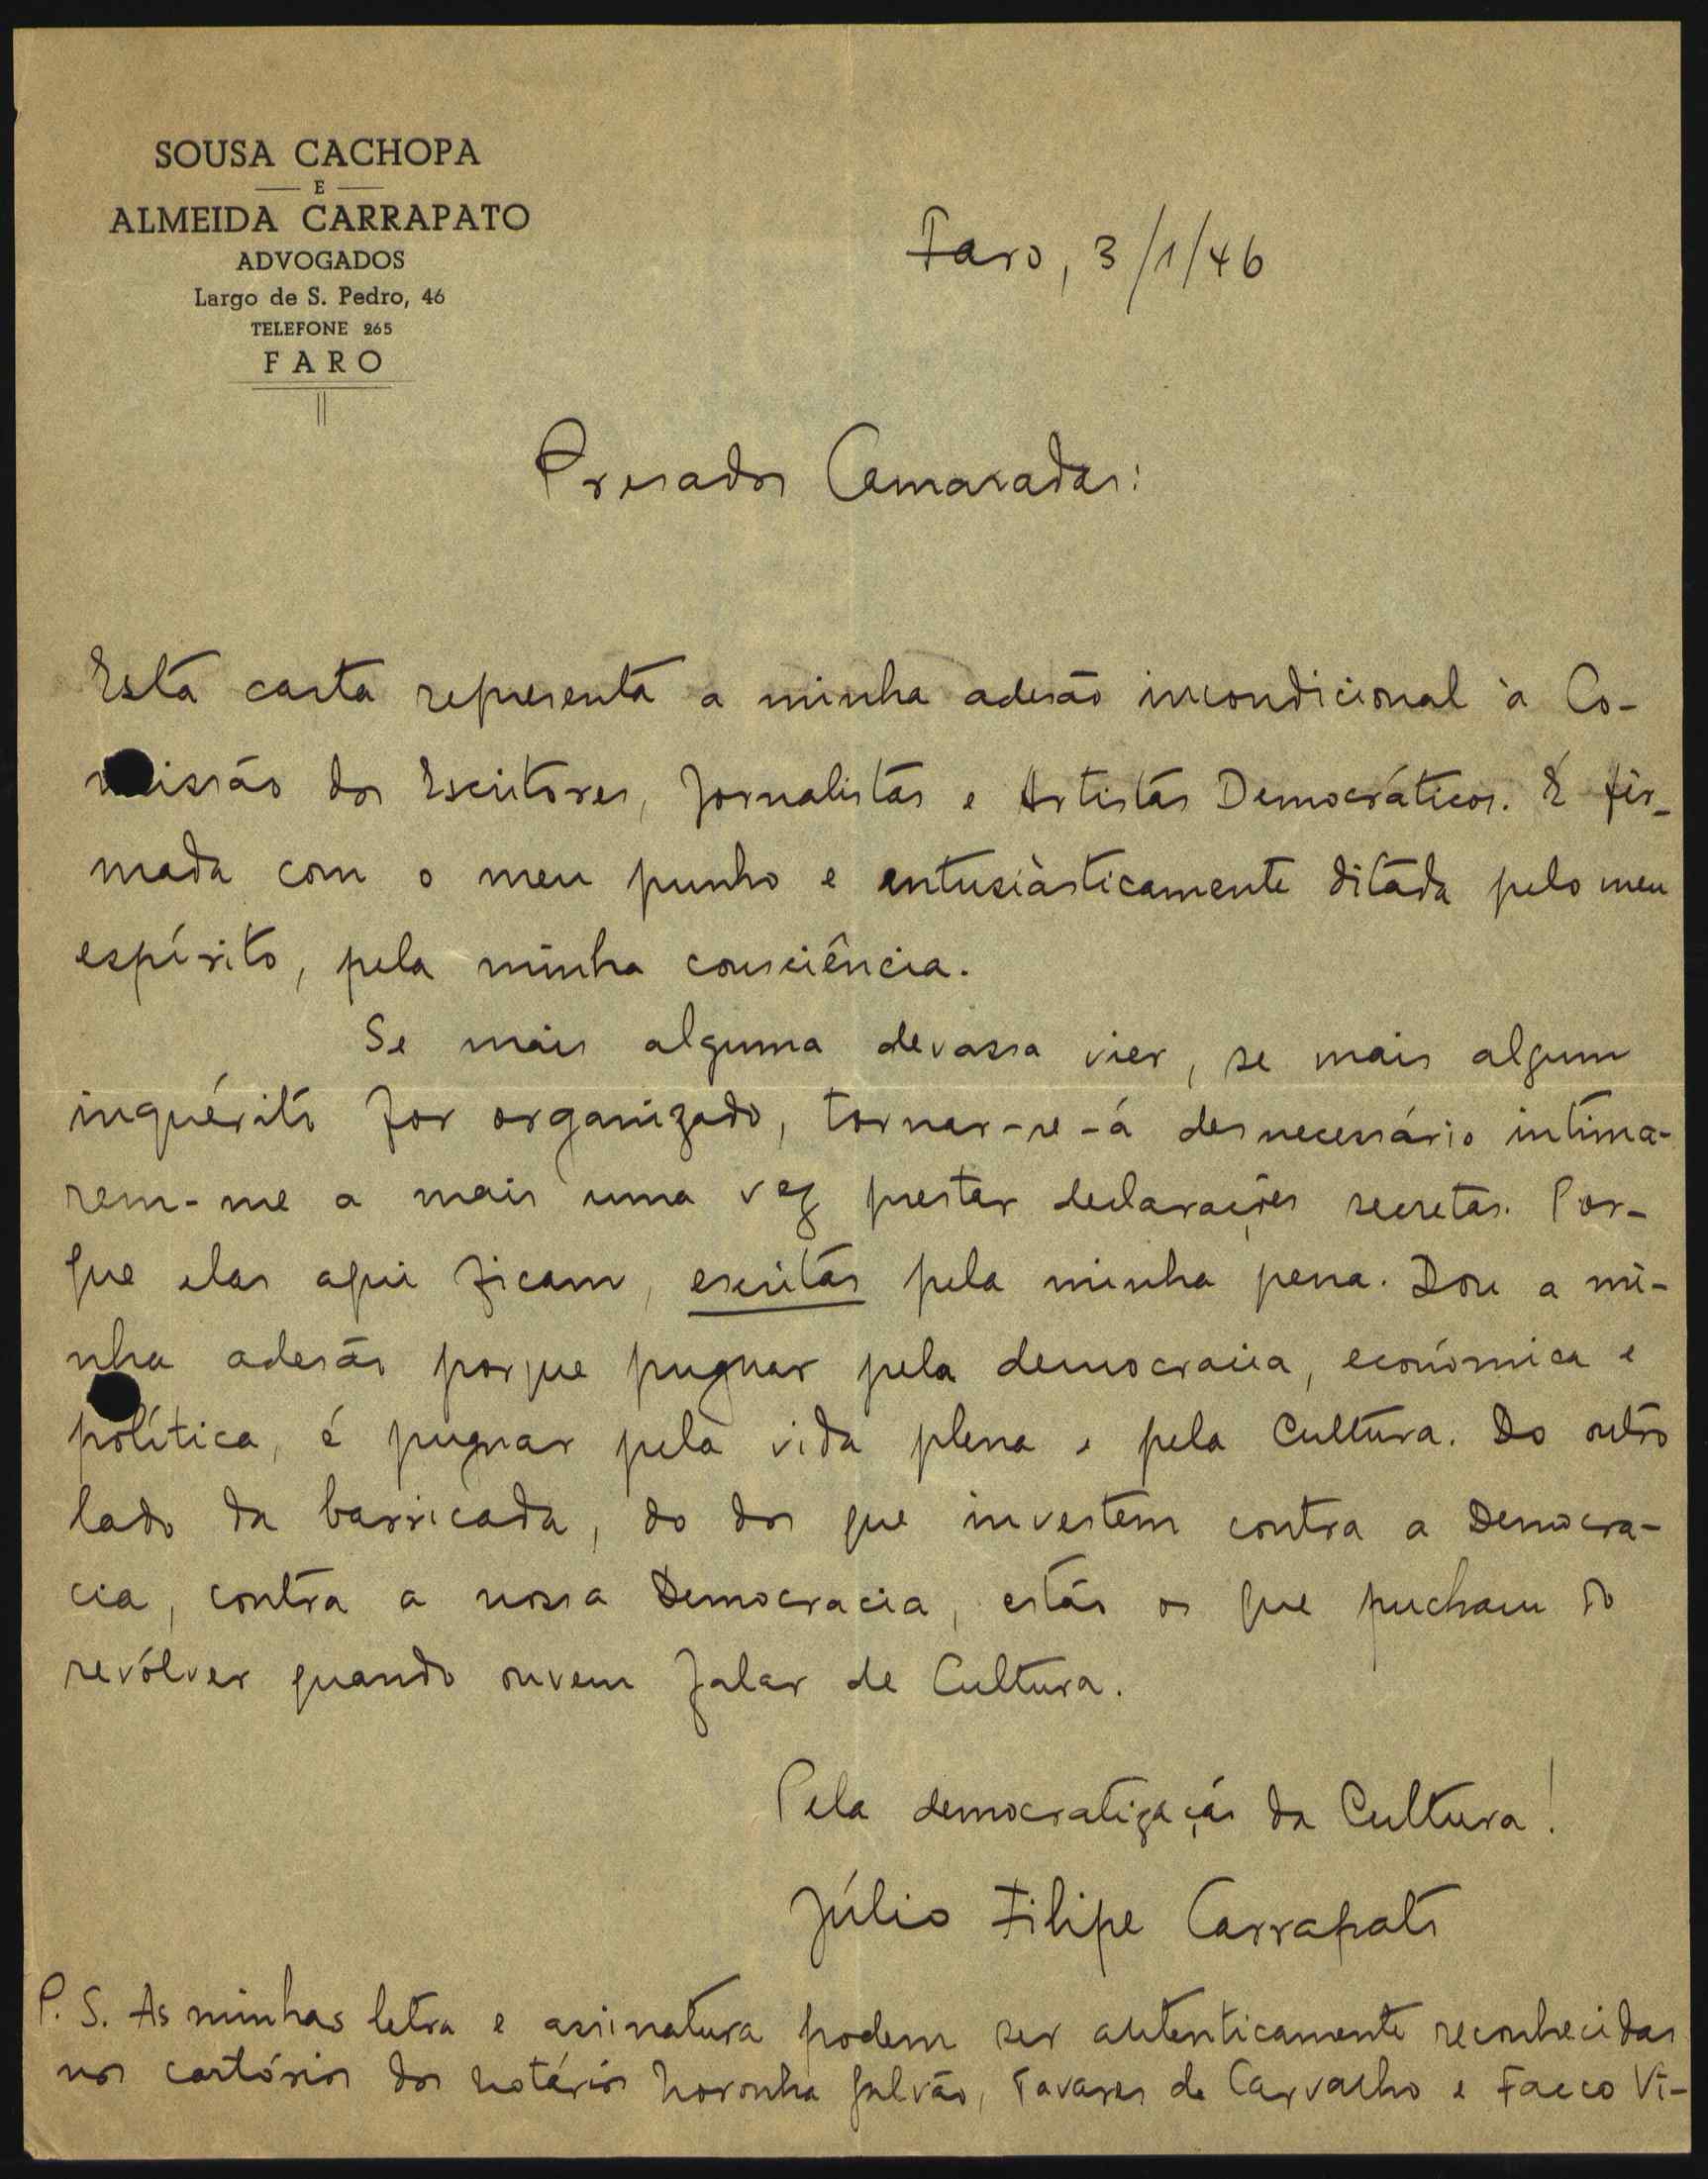 SOUSA CACHOPA
E
ALMEIDA CARRAPATO
ADVOGADOS
Largo de S. Pedro, 46
TELEFONE 265
FARO
Faro, 3/1/46
Presados Camaradas:
Esta carta representa a minha adesão incondicional à Co-
missão dos Escritores, Jornalistas e Artistas Democráticos. É fir-
mada com o meu punho e entusiàsticamente ditada pelo meu
espírito, pela minha consciência.
Se mais alguma devassa vier, se mais algum
inquérito for organizado, tornar-se-á desnecessário intima-
rem-me a mais uma vez prestar declarações secretas. Por-
que elas aqui ficam, escritas pela minha pena. Dou a mi-
nha adesão porque pugnar pela democracia, económica e
política, é pugnar pela vida plena e pela Cultura. Do outro
lado da barricada, do dos que investem contra a Democra-
cia, contra a nossa Democracia, estão os que pucham do
revólver quando ouvem falar de Cultura.
Pela democratização da Cultura!
Júlio Filipe Carrapato
P. S. As minhas letra e assinatura podem ser autenticamente reconhecidas
nos cartórios dos notários Noronha Galvão, Tavares de Carvalho e Facco Vi-